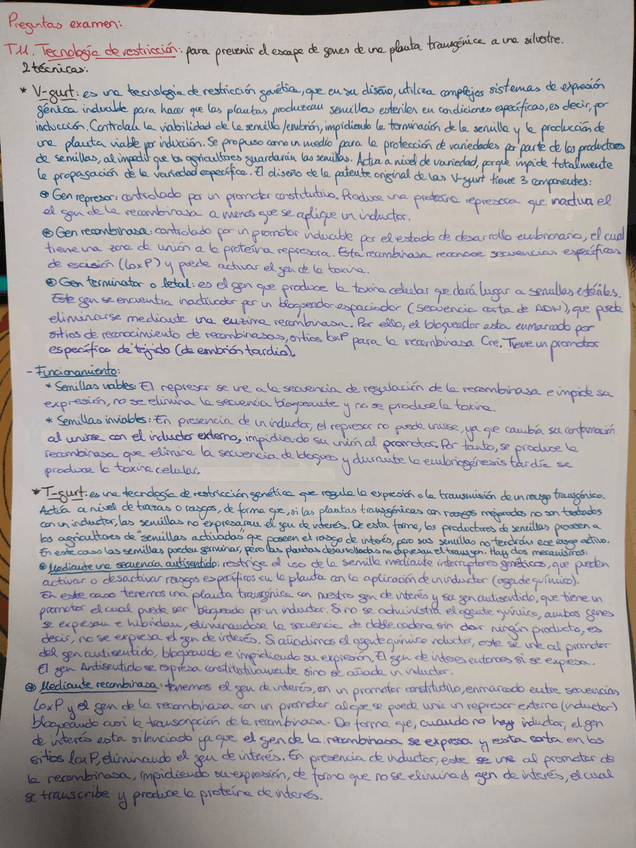 Preguntas examen:
T.11. Tecnología de restricción: para prevenir el escape de genes de una planta transgénica a una silvestre.
2 técnicas:
* V-gurt: es una tecnología de restricción genética, que en su diseño, utiliza complejos sistemas de expresión
génica inducible para hacer que las plantas produzcan semillas estériles en condiciones específicas, es decir, por
inducción. Controlan la viabilidad de la semilla/embrión, impidiendo la terminación de la semilla y la producción de
una planta viable por inducción. Se propuso como un medio para la protección de variedades por parte de los productores
de semillas, al impedir que los agricultores guardarán las semillas. Actua a nivel de variedad, porque impide totalmente
la propagación de la variedad específica. El diseño de la patente original de las V-gurt tiene 3 componentes:
Gen represor: controlado por un promotor constitutivo. Produce una proteína represora que inactiva el
el gen de la recombinasa a menos que se aplique un inductor.
Gen recombinasa: controlado por un promotor inducible por el estado de desarrollo embrionario, el cual
tiene una zona de unión a la proteína represora. Esta recombinasa reconoce secuencias específicas
de escisión (loxP) y puede activar el gen de la toxina.
Gen terminator o letal: es el gen que produce la toxina celular que dará lugar a semillas estériles.
Este gen se encuentra inactivador por un bloqueador espaciador (secuencia corta de ADN), que puede
eliminarse mediante una enzima recombinasa. Por ello, el bloqueador esta enmarcado por
sitios de reconocimiento de recombinasas, sitios loxP para la recombinasa Cre. Tiene un promotor
específico de tejido (de embrión tardío).
- Funcionamiento:
* Semillas viables: El represor se une a la secuencia de regulación de la recombinasa e impide su
expresión, no se elimina la secuencia bloqueante y no se produce la toxina.
* Semillas inviables: En presencia de un inductor, el represor no puede unirse, ya que cambia su conformación
al unirse con el inductor externo, impidiendo su unión al promotor. Por tanto, se produce la
recombinasa que elimina la secuencia de bloqueo y durante la embriogénesis tardía se
produce la toxina celular.
* T-gurt: es una tecnología de restricción genética que regula la expresión o la transmisión de un rasgo transgénico.
Actúa a nivel de trazas o rasgos, de forma que, si las plantas transgénicas con rasgos mejorados no son tratados
con un inductor, las semillas no expresaran el gen de interés. De esta forma, los productores de semillas proveen a
los agricultores de semillas activadas que poseen el rasgo de interés, pero sus semillas no tendrán ese rasgo activo.
En este caso las semillas pueden germinar, pero las plantas desarrolladas no expresan el transgen. Hay dos mecanismos:
Mediante una secuencia autisentido: restringe el uso de la semilla mediante interruptores genéticos, que pueden
activar o desactivar rasgos específicos en la planta con la aplicación de un inductor (agente químico).
En este caso tenemos una planta transgénica con nuestro gen de interés y su gen autisentido, que tiene un
promotor el cual puede ser bloqueado por un inductor. Si no se administra el agente químico, ambos genes
se expresan e hibridan, eliminandose la secuencia de doble cadena sin dar ningún producto, es
decir, no se expresa el gen de interés. Si añadimos el agente químico inductor, este se une al promotor
del gen autisentido, bloqueando e impidiendo su expresión, El gen de interes entonces si se expresa.
El gen Antisentido se expresa constitutivamente sino se añade un inductor.
Mediante recombinasa: tenemos el gen de interés, con un promotor constitutivo, enmarcado entre secuencias
LoxP y el gen de la recombinasa con un promotor al que se puede unir un represor externo (inductor)
bloqueando así la transcripción de la recombinasa. De forma que, cuando no hay inductor, el gen
de interés esta silenciado ya que el gen de la recombinasa se expresa y esta corta en los
sitios loxP, eliminando el gen de interés. En presencia de inductor, este se une al promotor de
la recombinasa, impidiendo su expresión, de forma que no se elimina el gen de interés, el cual
se transcribe y produce la proteína de interés.